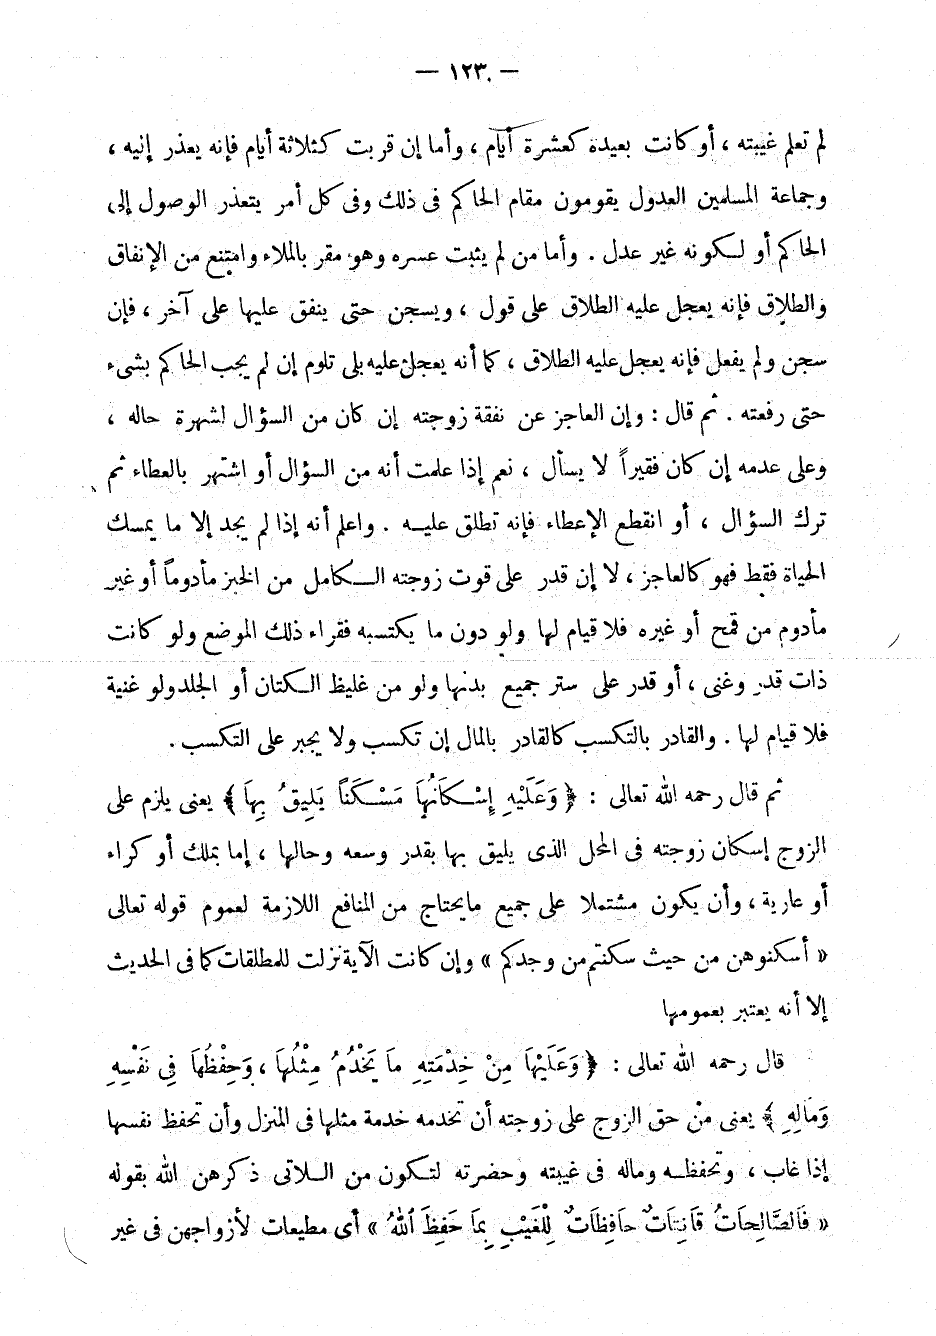 — ١٢٣ —
لم تعلم غيبته ، أو كانت بعيدة كعشرة أيام ، وأما إن قربت كثلاثة أيام فإنه يعذر إليه ،
وجماعة المسلمين العدول يقومون مقام الحاكم فى ذلك وفى كل أمر يتعذر الوصول إلى
الحاكم أو لكونه غير عدل . وأما من لم يثبت عسره وهو مقر بالملاء وامتنع من الإنفاق
والطلاق فإنه يعجل عليه الطلاق على قول ، ويسجن حتى ينفق عليها على آخر ، فإن
سجن ولم يفعل فإنه يعجل عليه الطلاق ، كما أنه يعجل عليه بلى تلوم إن لم يجب الحاكم بشىء
حتى رفعته . ثم قال : وإن العاجز عن نفقة زوجته إن كان من السؤال لشهرة حاله ،
وعلى عدمه إن كان فقيراً لا يسأل ، نعم إذا علمت أنه من السؤال أو اشتهر بالعطاء ثم
ترك السؤال ، أو انقطع الإعطاء فإنه تطلق عليه . واعلم أنه إذا لم يجد إلا ما يمسك
الحياة فقط فهو كالعاجز ، لا إن قدر على قوت زوجته الكامل من الخبز مأدوماً أو غير
مأدوم من قمح أو غيره فلا قيام لها ولو دون ما يكتسبه فقراء ذلك الموضع ولو كانت
ذات قدر وغنى ، أو قدر على ستر جميع بدنها ولو من غليظ الكتان أو الجلد ولو غنية
فلا قيام لها . والقادر بالتكسب كالقادر بالمال إن تكسب ولا يجبر على التكسب .
ثم قال رحمه الله تعالى : ﴿ وَعَلَيْهِ إِسْكَانُهَا مَسْكَنَاً يَلِيقُ بِهَا ﴾ يعنى يلزم على
الزوج إسكان زوجته فى المحل الذى يليق بها بقدر وسعه وحالها ، إما بملك أو كراء
أو عارية ، وأن يكون مشتملا على جميع مايحتاج من المنافع اللازمة لعموم قوله تعالى
« أسكنوهن من حيث سكنتم من وجدكم » وإن كانت الآية نزلت للمطلقات كما فى الحديث
إلا أنه يعتبر بعمومها
قال رحمه الله تعالى : ﴿ وَعَلَيْهَا مِنْ خِدْمَتِهِ مَا يَخْدُمُ مِثْلُهَا ، وَحِفْظُهَا فِى نَفْسِهِ
وَمَالِهِ ﴾ يعنى من حق الزوج على زوجته أن تخدمه خدمة مثلها فى المنزل وأن تحفظ نفسها
إذا غاب ، وتحفظه وماله فى غيبته وحضرته لتكون من اللاتى ذكرهن الله بقوله
« فَالصَّالِحَاتُ قَانِتَاتٌ حَافِظَاتٌ لِلْغَيْبِ بِمَا حَفِظَ اللهُ » أى مطيعات لأزواجهن فى غير